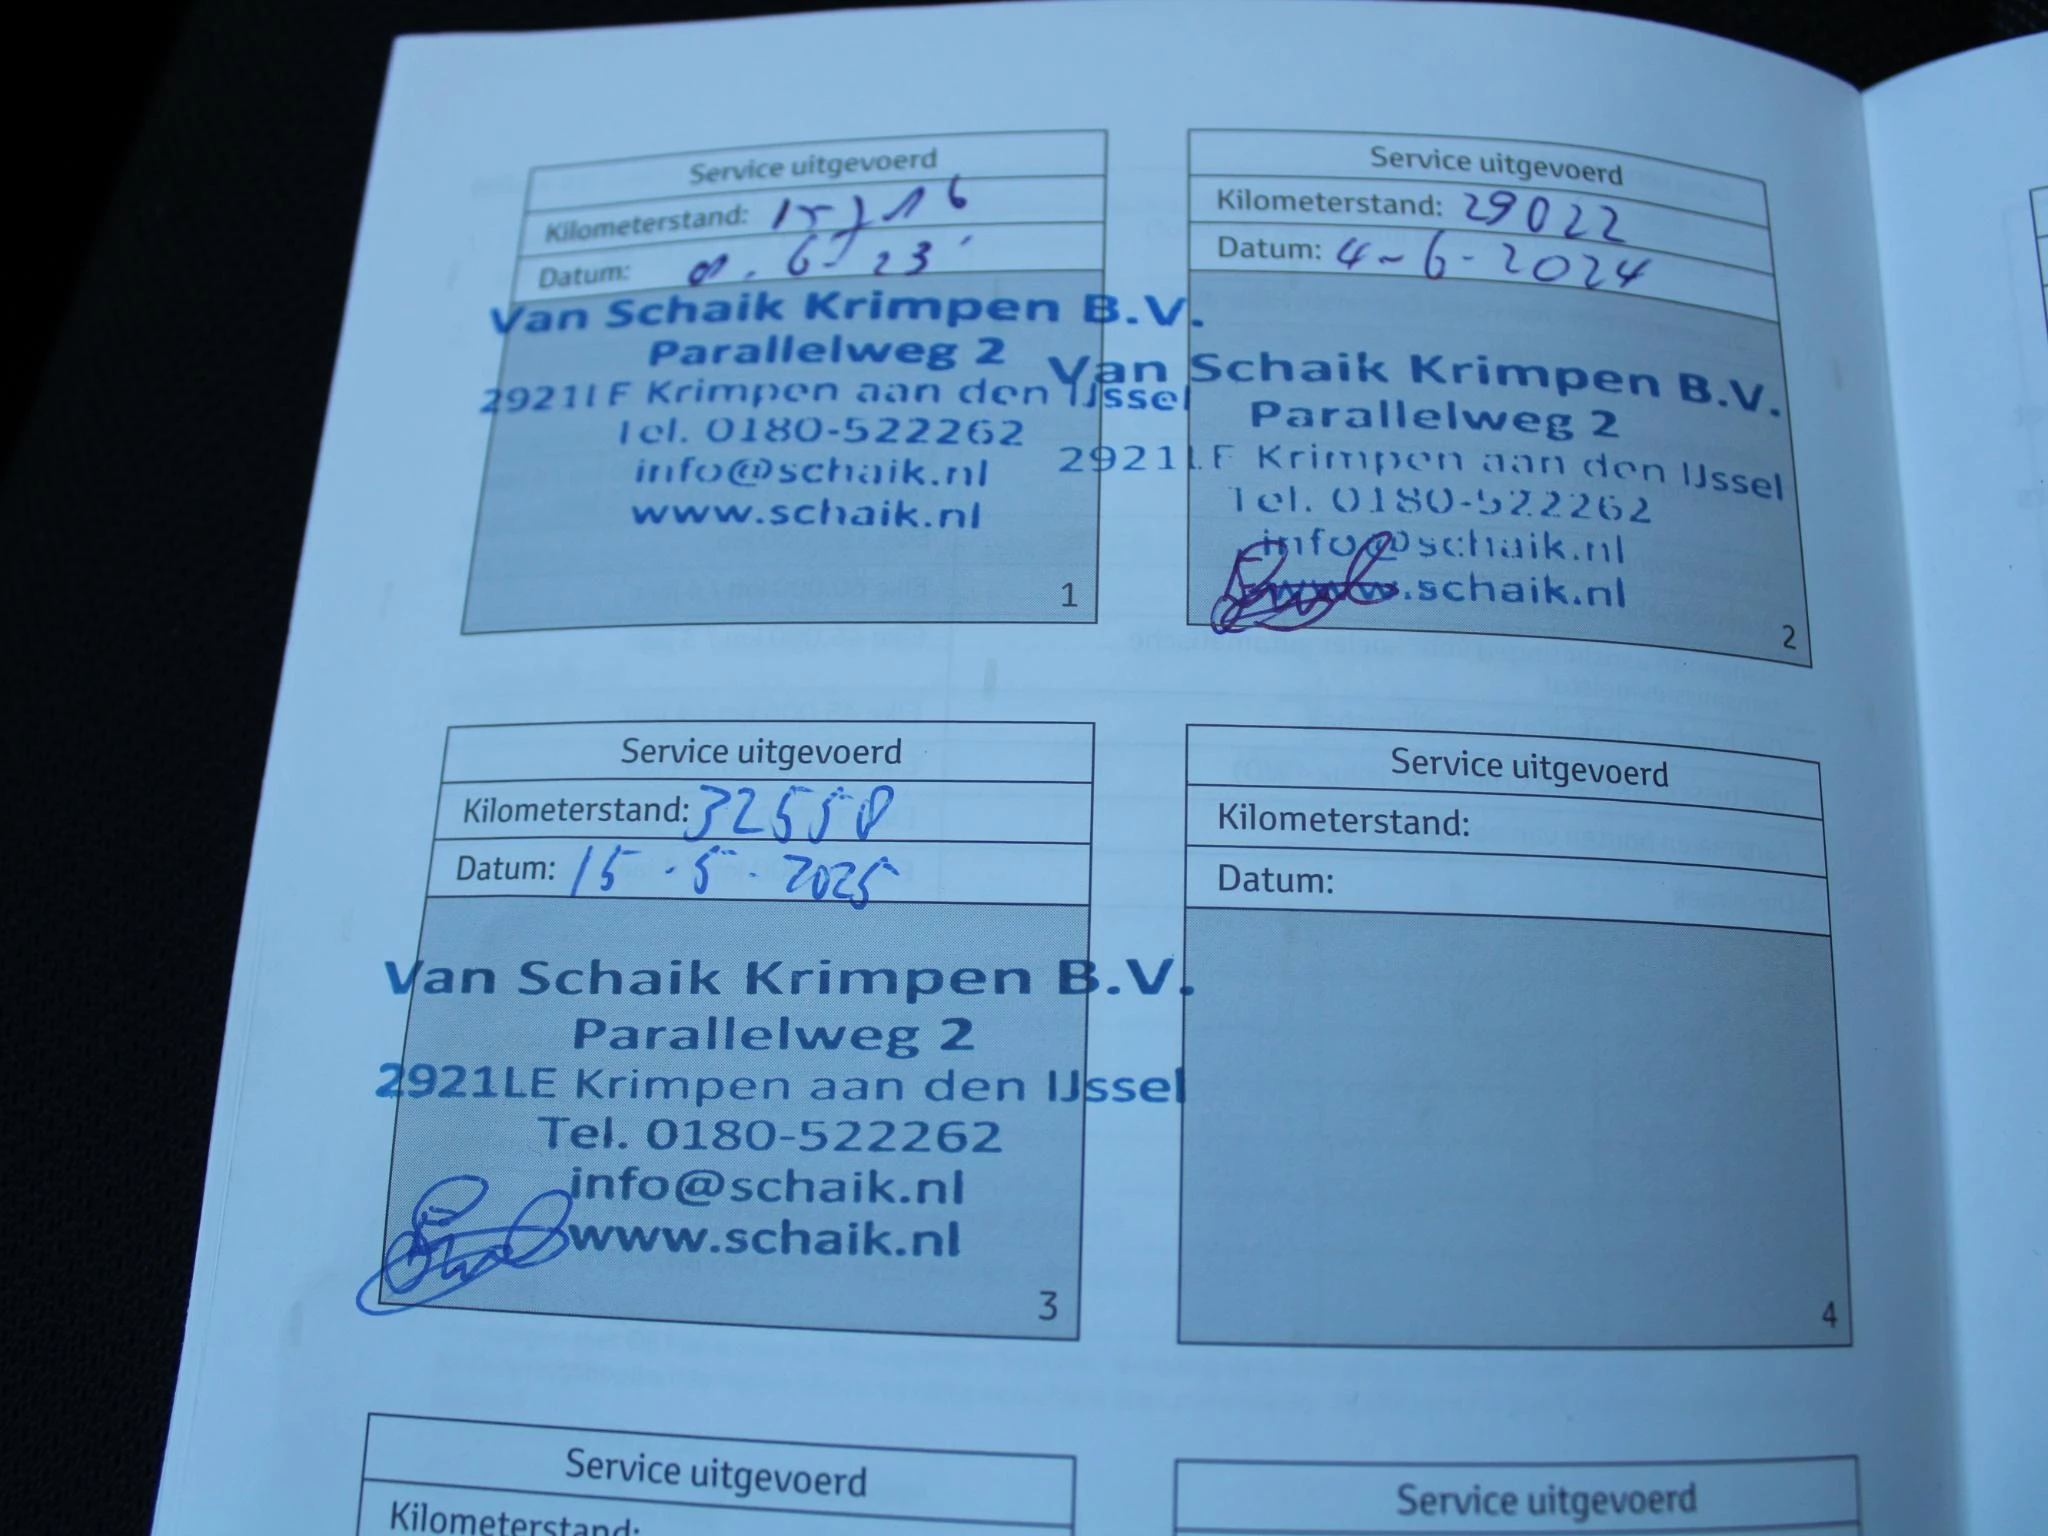 Service uitgevoerd
Kilometerstand:
Datum: 6-23
Van Schaik Krimpen B.V.
Parallelweg 2
2921LF Krimpen aan den IJssel
Tel. 0180-522262
info@schaik.nl
www.schaik.nl
1
Service uitgevoerd
Kilometerstand: 29022
Datum: 4-6-2024
Van Schaik Krimpen B.V.
Parallelweg 2
2921LF Krimpen aan den IJssel
Tel. 0180-522262
info@schaik.nl
www.schaik.nl
2
Service uitgevoerd
Kilometerstand: 32550
Datum: 15-5-2025
Van Schaik Krimpen B.V.
Parallelweg 2
2921LE Krimpen aan den IJssel
Tel. 0180-522262
info@schaik.nl
www.schaik.nl
3
Service uitgevoerd
Kilometerstand:
Datum:
4
Service uitgevoerd
Kilometerstand:
Service uitgevoerd